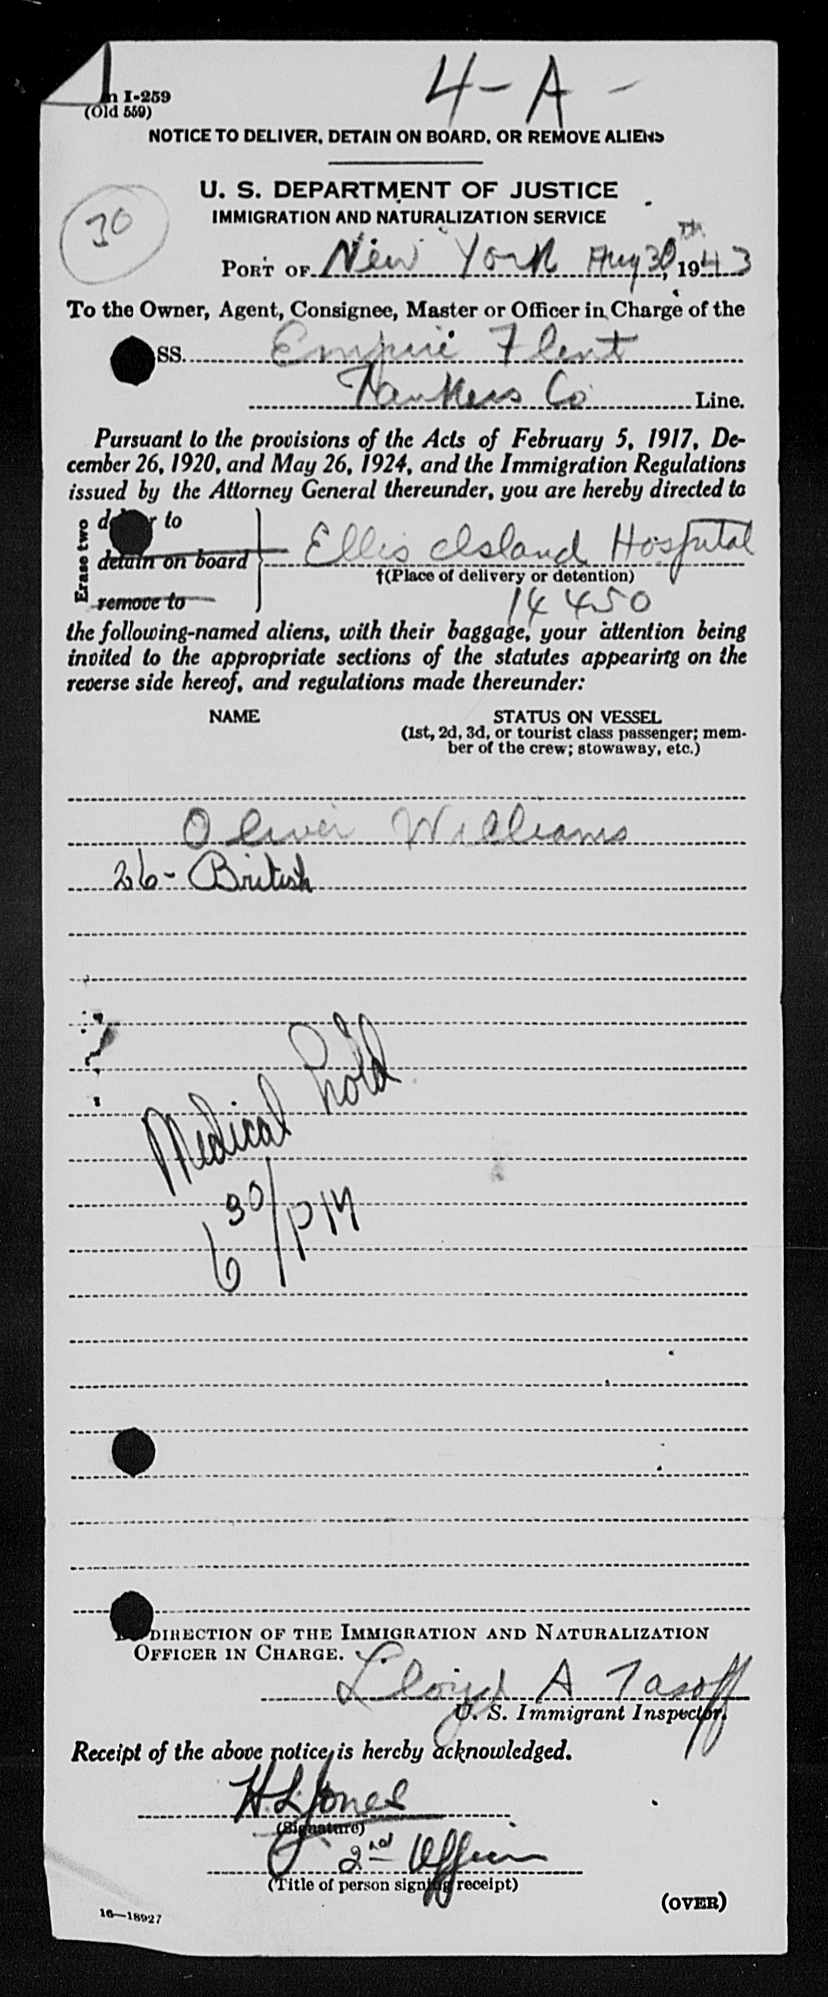 4-A-
m I-259
(Old 559)
NOTICE TO DELIVER, DETAIN ON BOARD, OR REMOVE ALIENS
30
U. S. DEPARTMENT OF JUSTICE
IMMIGRATION AND NATURALIZATION SERVICE
PORT OF New York Aug 30th, 1943
To the Owner, Agent, Consignee, Master or Officer in Charge of the
SS. Empire Flint
Tankers Co Line.
Pursuant to the provisions of the Acts of February 5, 1917, De-
cember 26, 1920, and May 26, 1924, and the Immigration Regulations
issued by the Attorney General thereunder, you are hereby directed to
Erase two
d r to
detain on board
remove to
Ellis Island Hospital
†(Place of delivery or detention)
14450
the following-named aliens, with their baggage, your attention being
invited to the appropriate sections of the statutes appearing on the
reverse side hereof, and regulations made thereunder:
NAME STATUS ON VESSEL
(1st, 2d, 3d, or tourist class passenger; mem-
ber of the crew; stowaway, etc.)
Oliver Williams
26- British
Medical hold
6 30/PM
DIRECTION OF THE IMMIGRATION AND NATURALIZATION
OFFICER IN CHARGE.
Lloyd A Tasoff
U. S. Immigrant Inspector.
Receipt of the above notice is hereby acknowledged.
H.L. Jones
(Signature)
2nd Officer
(Title of person signing receipt)
16—18927
(OVER)